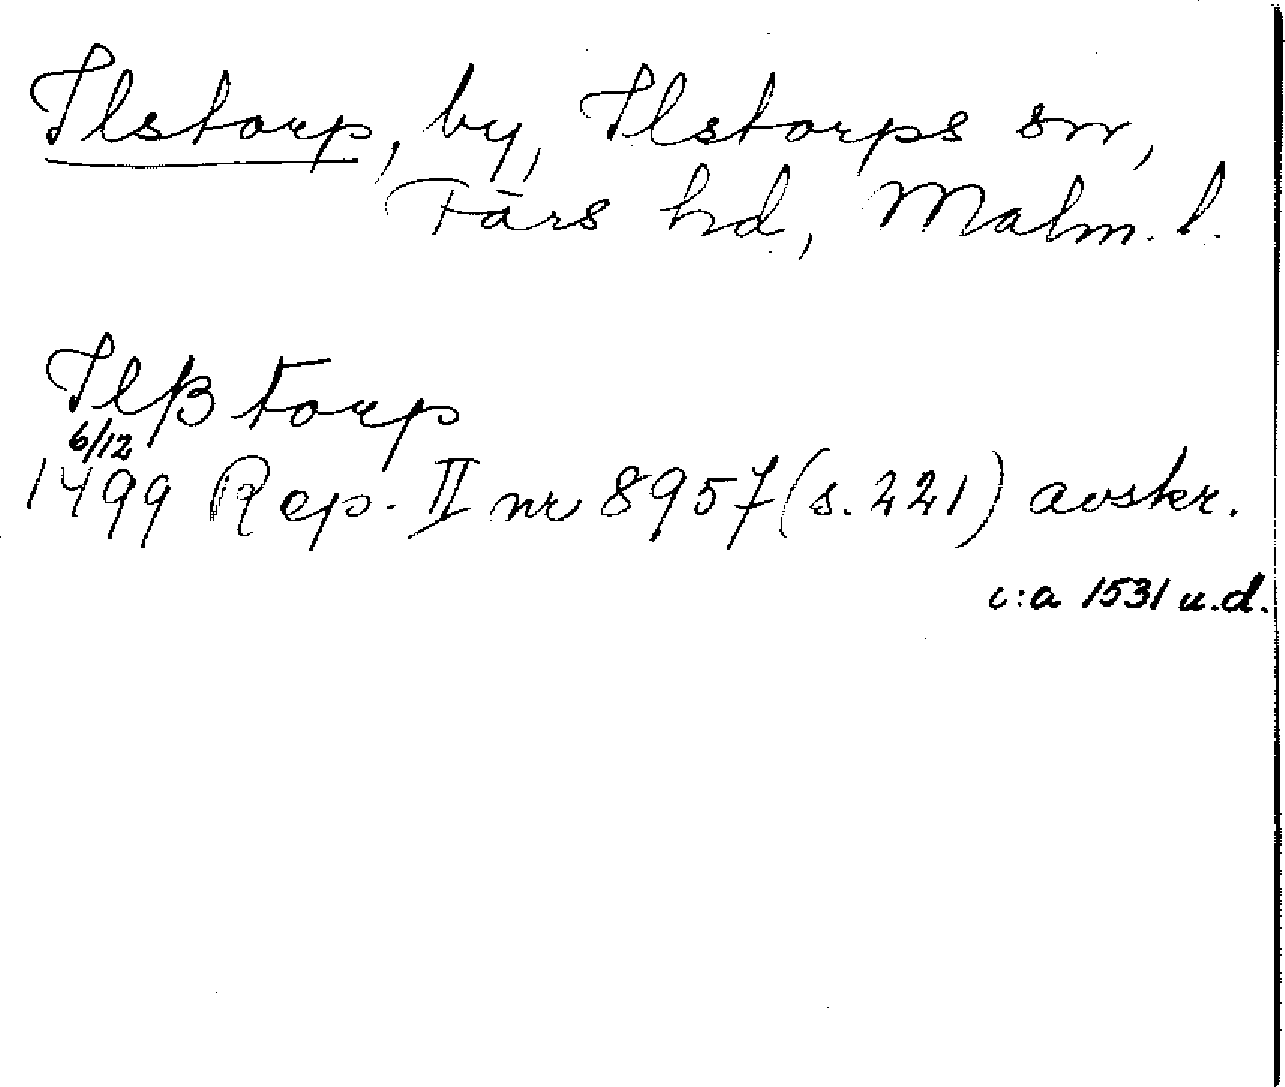 Ilstorp, by, Ilstorps sn,
Färs hd, Malm. l.
Ilβtorp
6/12
1499 Rep. II nr 8957 (s. 221) avskr.
c:a 1531 u.d.